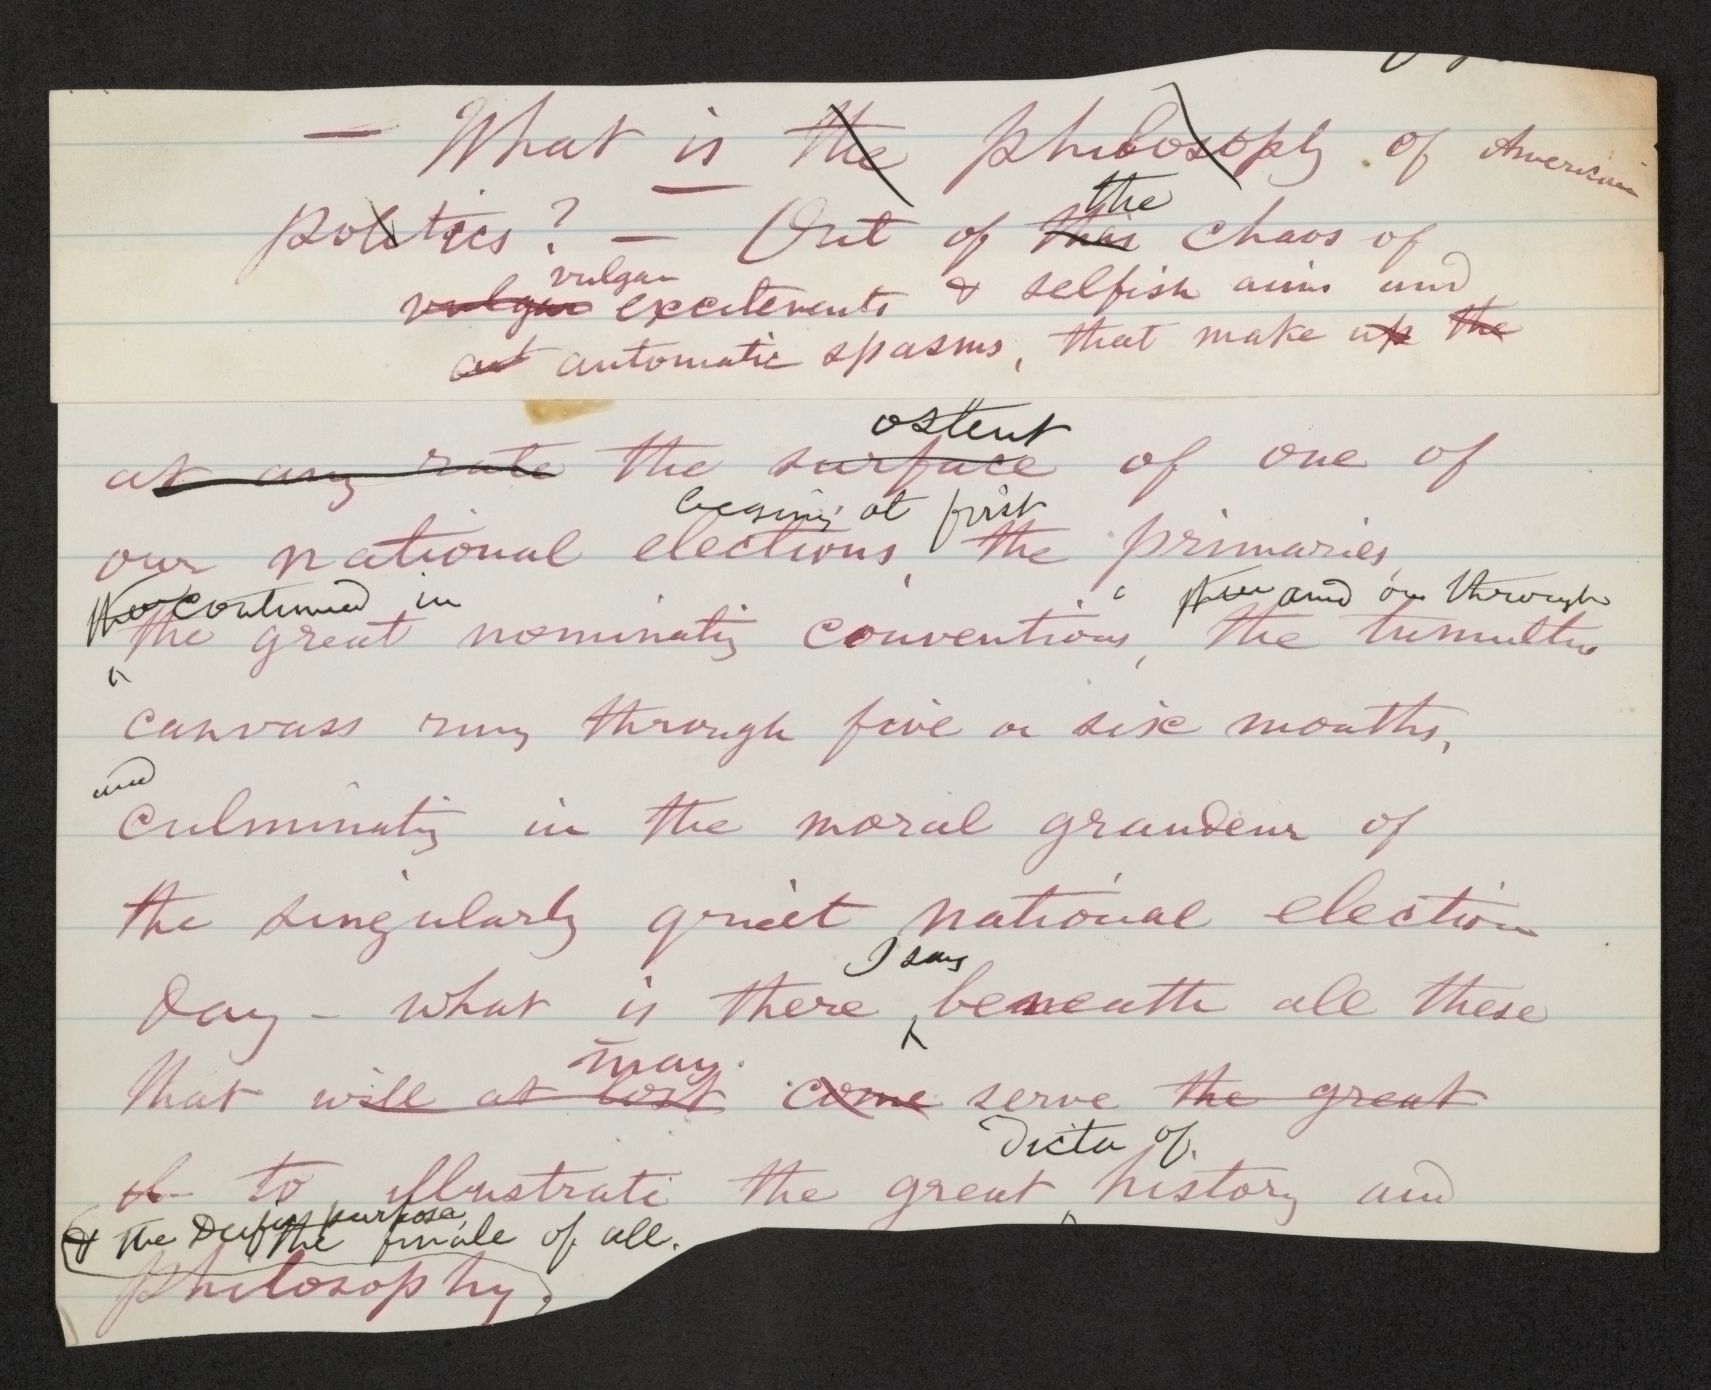 — What is the philosophy of American
the
politics? — Out of this chaos of
vulgar
vulgar excitements & selfish aims and
at automatic spasms, that make up the
ostent
at any rate the surface of one of
begining at first
our national elections, the primaries,
continued in and on through
the great nominating conventions, the
canvass runng through five or six months,
and
culminating in the moral grandeur of
the singularly quiet national election
day – what is there beneath all these
I say
may
that will at last come serve the great
dicta of
to illustrate the great history and
purpose,
& the the finale of all.
philosophy,